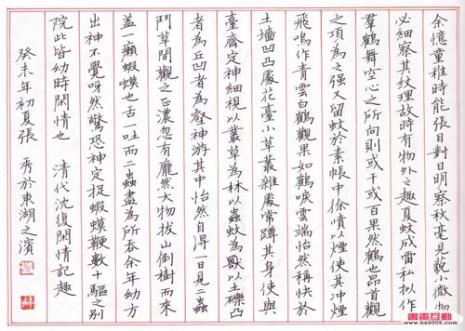 余憶童稚時能張目對日明察秋毫見藐小微物
必細察其紋理故時有物外之趣夏蚊成雷私擬作
羣鶴舞空心之所向則或千或百果然鶴也昂首觀
之項為之强又留蚊於素帳中徐噴以煙使其冲煙
飛鳴作青雲白鶴觀果如鶴唳雲端怡然稱快於
土墻凹凸處花臺小草叢雜處常蹲其身使與
臺齊定神細視以叢草為林以蟲蚊為獸以土礫凸
者為丘凹者為壑神游其中怡然自得一日見二蟲
鬥草間觀之正濃忽有龐然大物拔山倒樹而來
蓋一癩蝦蟆也舌一吐而二蟲盡為所吞余年幼方
出神不覺呀然驚恐神定捉蝦蟆鞭數十驅之別
院此皆幼時閑情也 清代沈復閑情記趣
癸未年初夏張 秀於東湖之濱
書畫互動